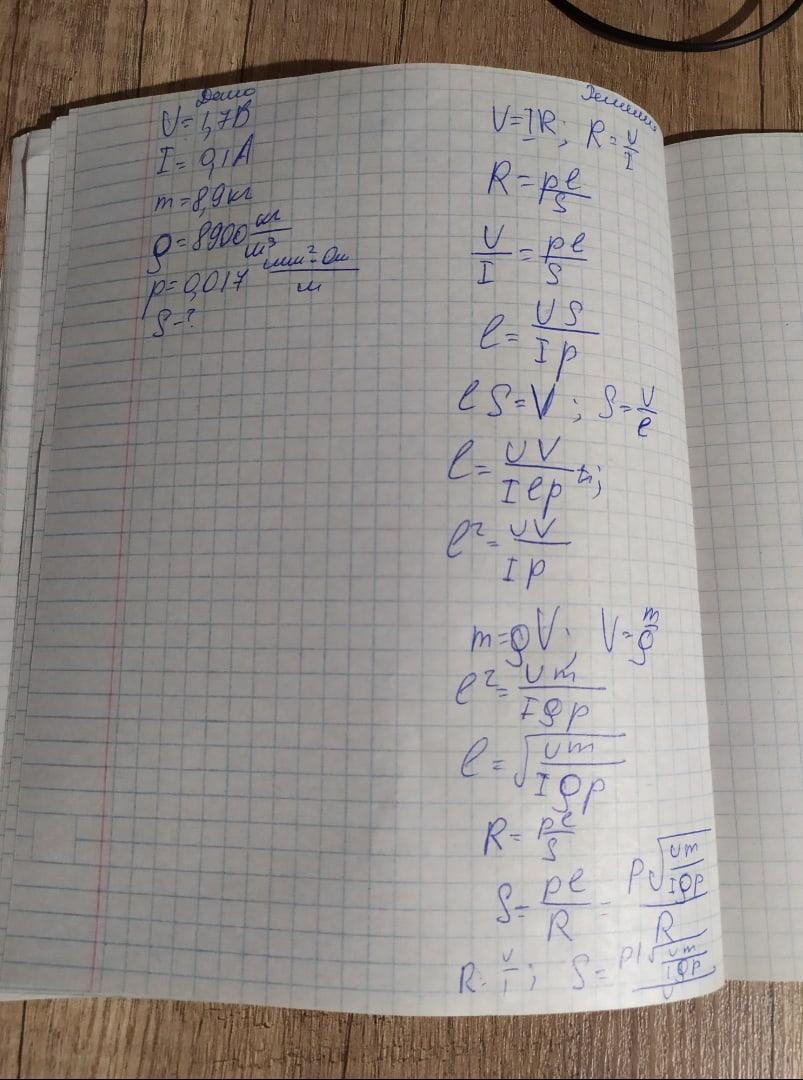 Дано
U = 1,7В
I = 0,1А
m = 8,9 кг
ρ = 8900 кг/м³
p = 0,017 мм²·Ом/м
S - ?
Решение
U = IR; R = U/I
R = pl/S
U/I = pl/S
l = US/Ip
lS = V; S = V/l
l = UV/Ilp
l² = UV/Ip
m = ρV; V = m/ρ
l² = Um/Iρp
l = √(Um/Iρp)
R = pl/S
S = pl/R = p√(Um/Iρp)/R
R = U/I; S = pI√(Um/Iρp)/U